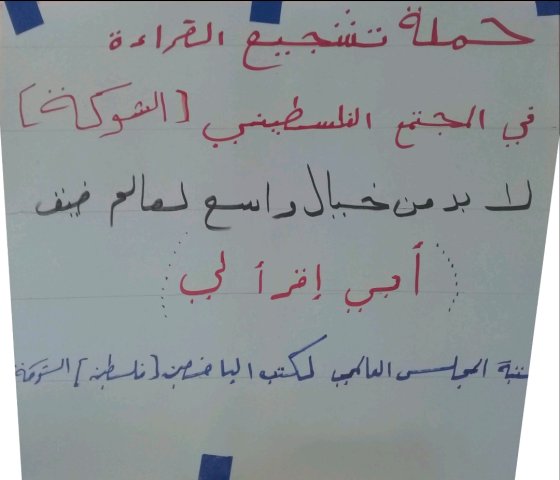 حملة تشجيع القراءة
في المجتمع الفلسطيني [الشوكة]
لا بد من خيال واسع لعالم ضيق
(أمي إقرأ لي)
المجلس العالمي لكتب اليافعين [فلسطين] الشوكة